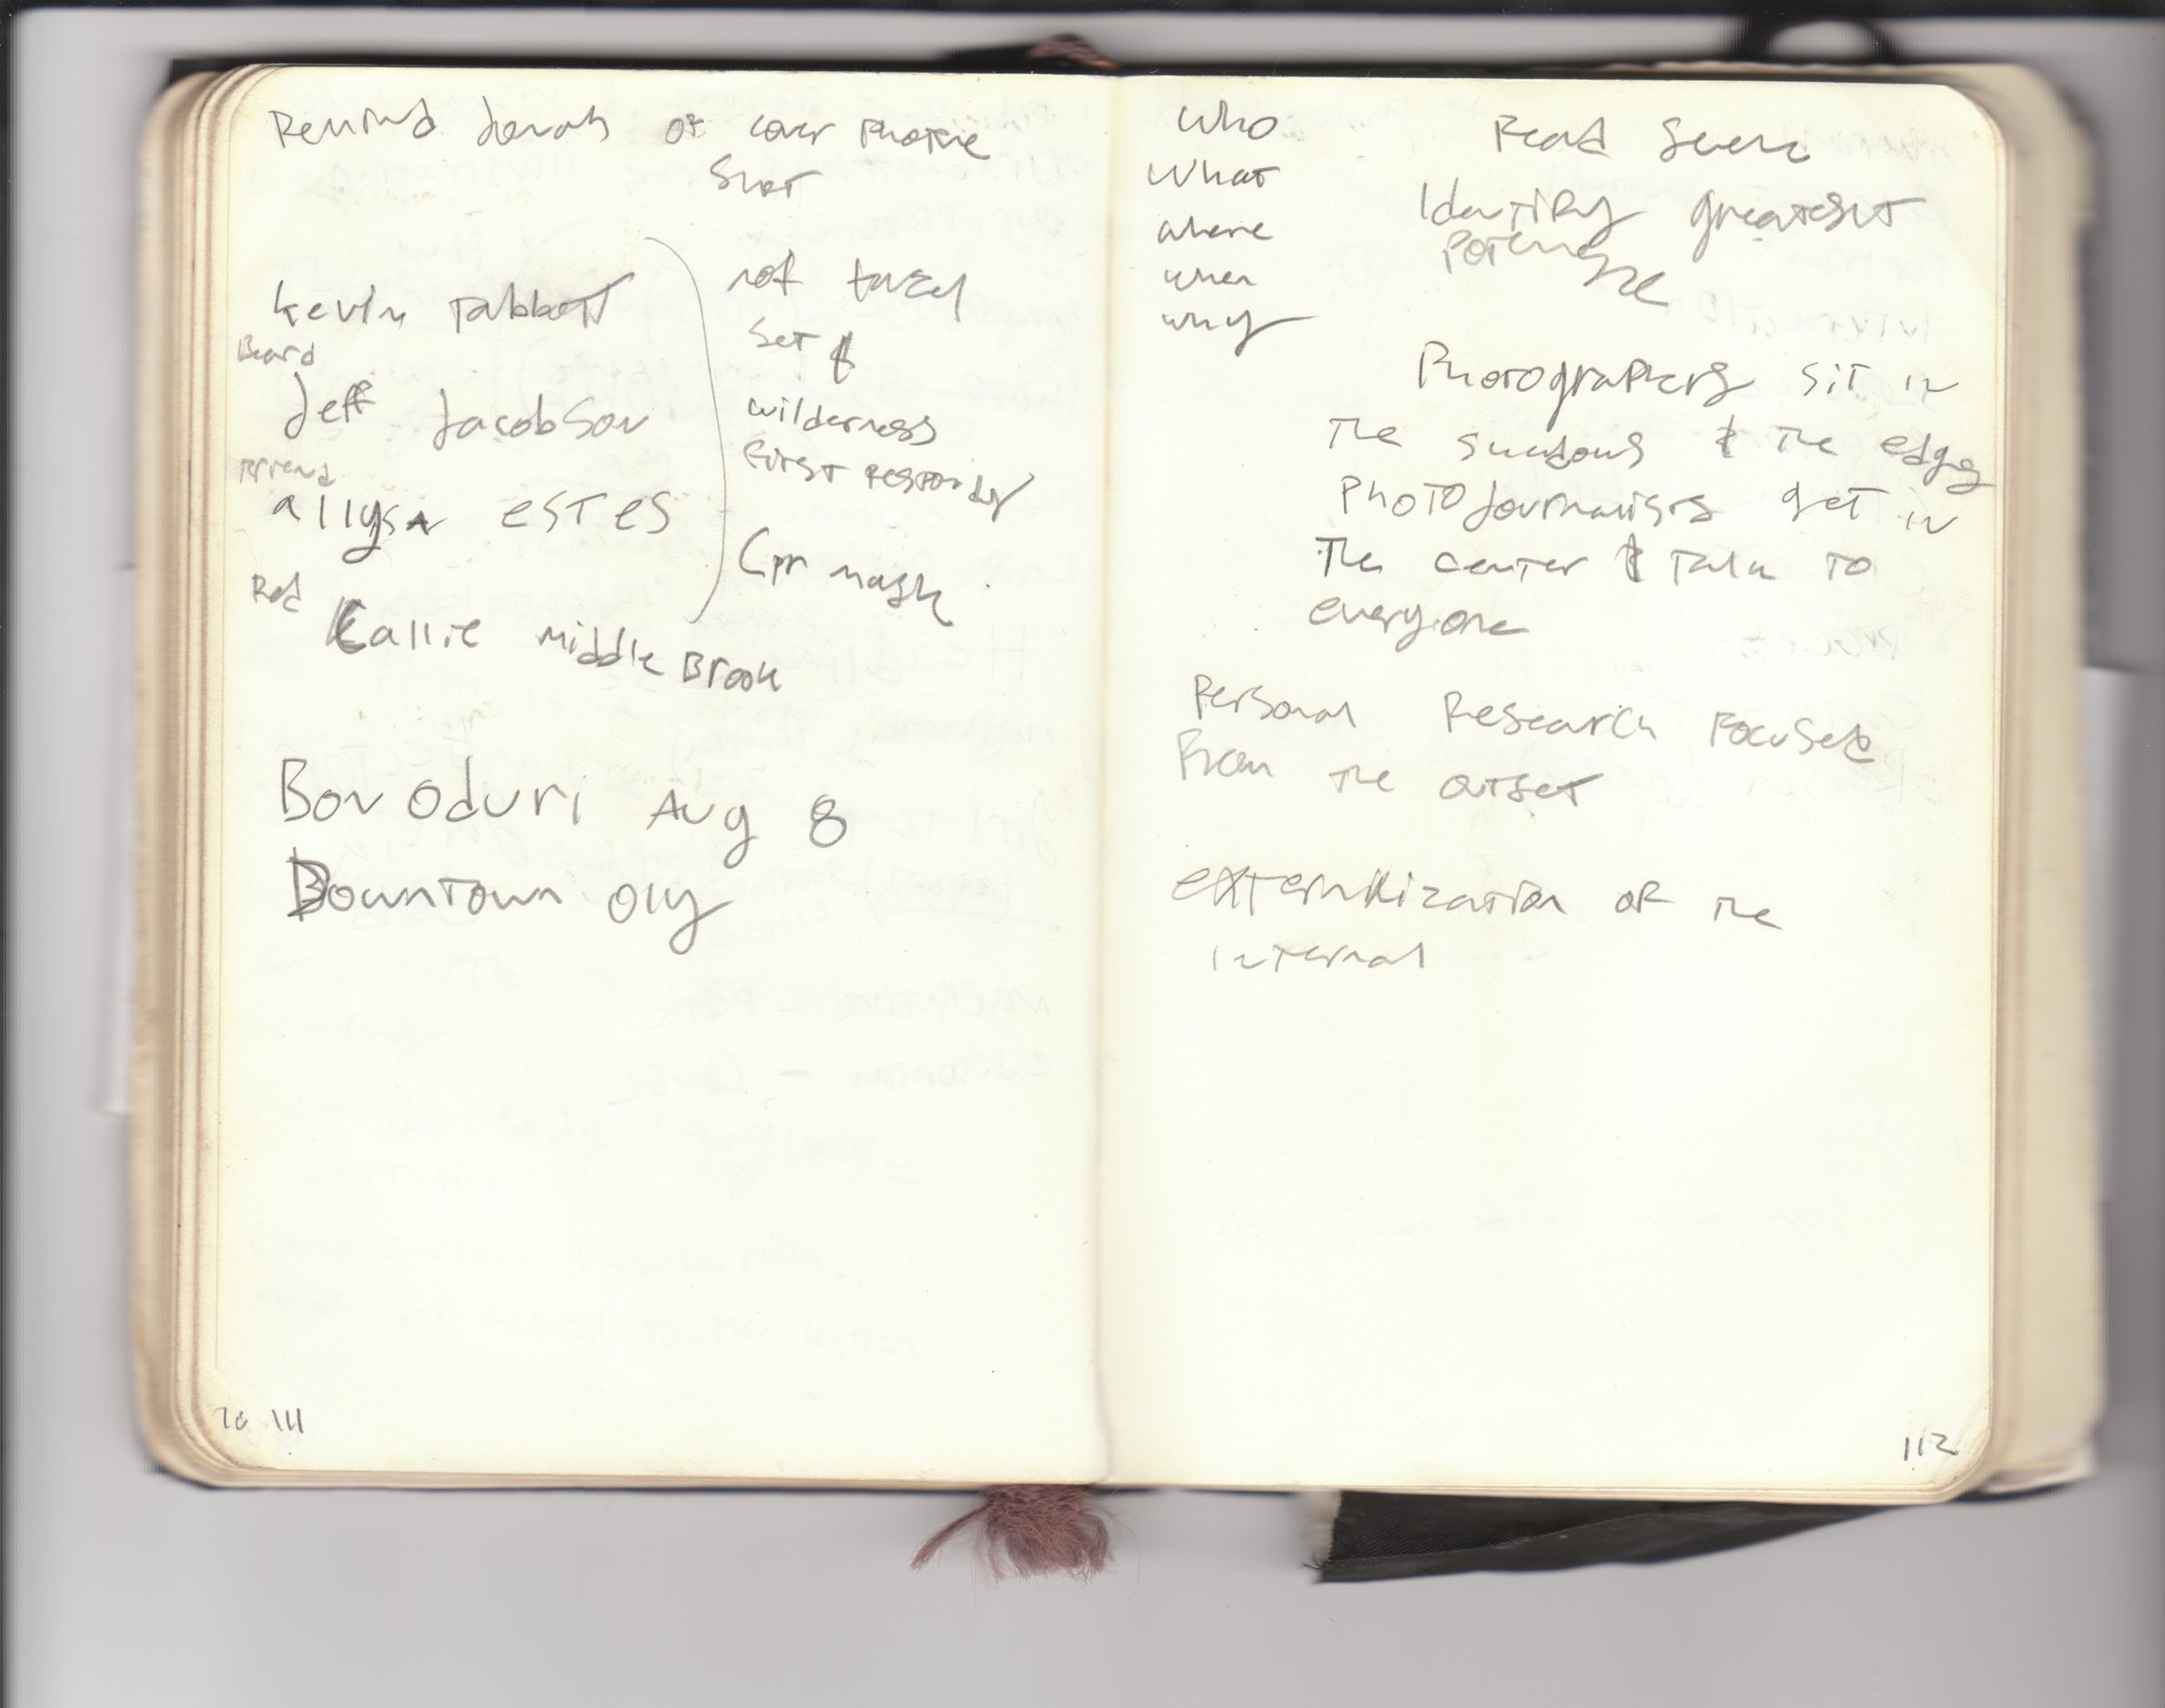 Remind of cover
Shot
Kevin Tabbott
Beard
Jeff Jacobson
Friend
allysa estes
Red
Kallie middle Brook
not
set of
wilderness
First responder
Cpr mask
Bon Oduri Aug 8
Downtown Oly
111
Who
What
where
when
why
Read
Identify greatest
Photographers sit in
The & The edges
Photojournalists get in
The center & Talk to
everyone
Personal Research Focused
From the outset
externalization of the
Internal
112